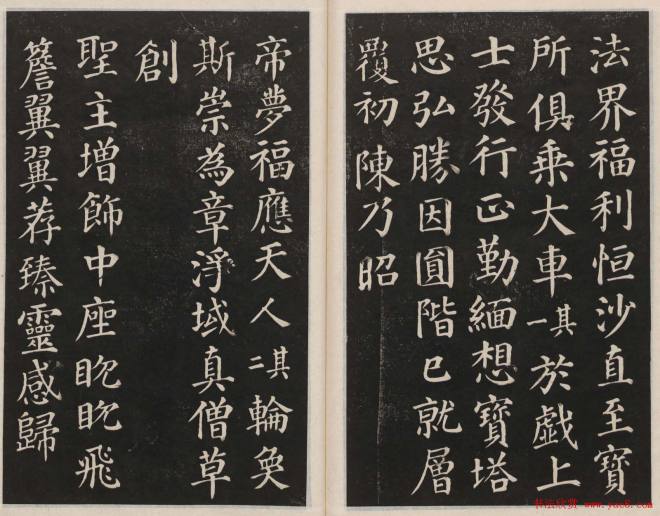 法界福利恒沙直至寶
所俱乗大車其一於戲上
士發行正勤緬想寶塔
思弘勝因圓階已就層
覆初陳乃昭
帝夢福應天人其二輪奐
斯崇為章淨域真僧草
創
聖主增飾中座眈眈飛
簷翼翼荐臻靈感歸
书法欣赏 www.yac8.com